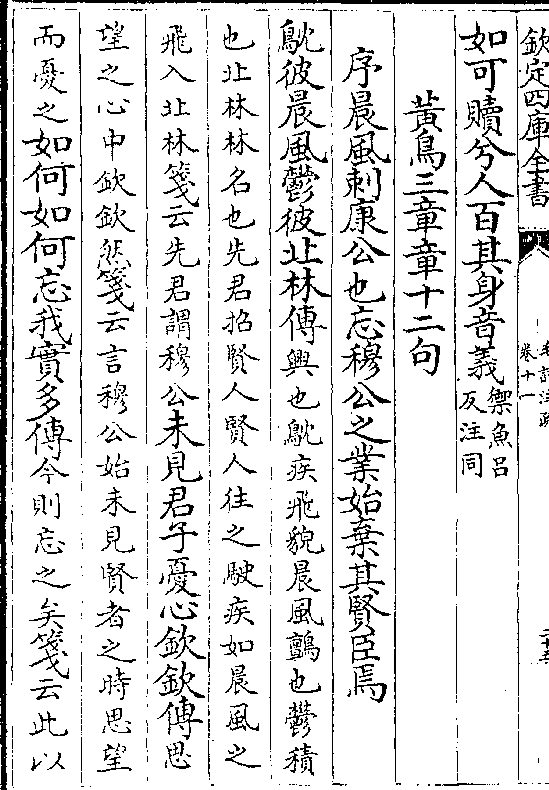 欽定四庫全書
毛詩注疏
卷十一
如可贖兮人百其身音義禦魚呂
反注同
黄鳥三章章十二句
序晨風刺康公也忘穆公之業始棄其賢臣焉
鴥彼晨風鬱彼北林傳興也鴥疾飛貌晨風鸇也鬱積
也北林林名也先君招賢人賢人往之駛疾如晨風之
飛入北林箋云先君謂穆公未見君子憂心欽欽傳思
望之心中欽欽然箋云言穆公始未見賢者之時思望
而憂之如何如何忘我實多傳今則忘之矣箋云此以